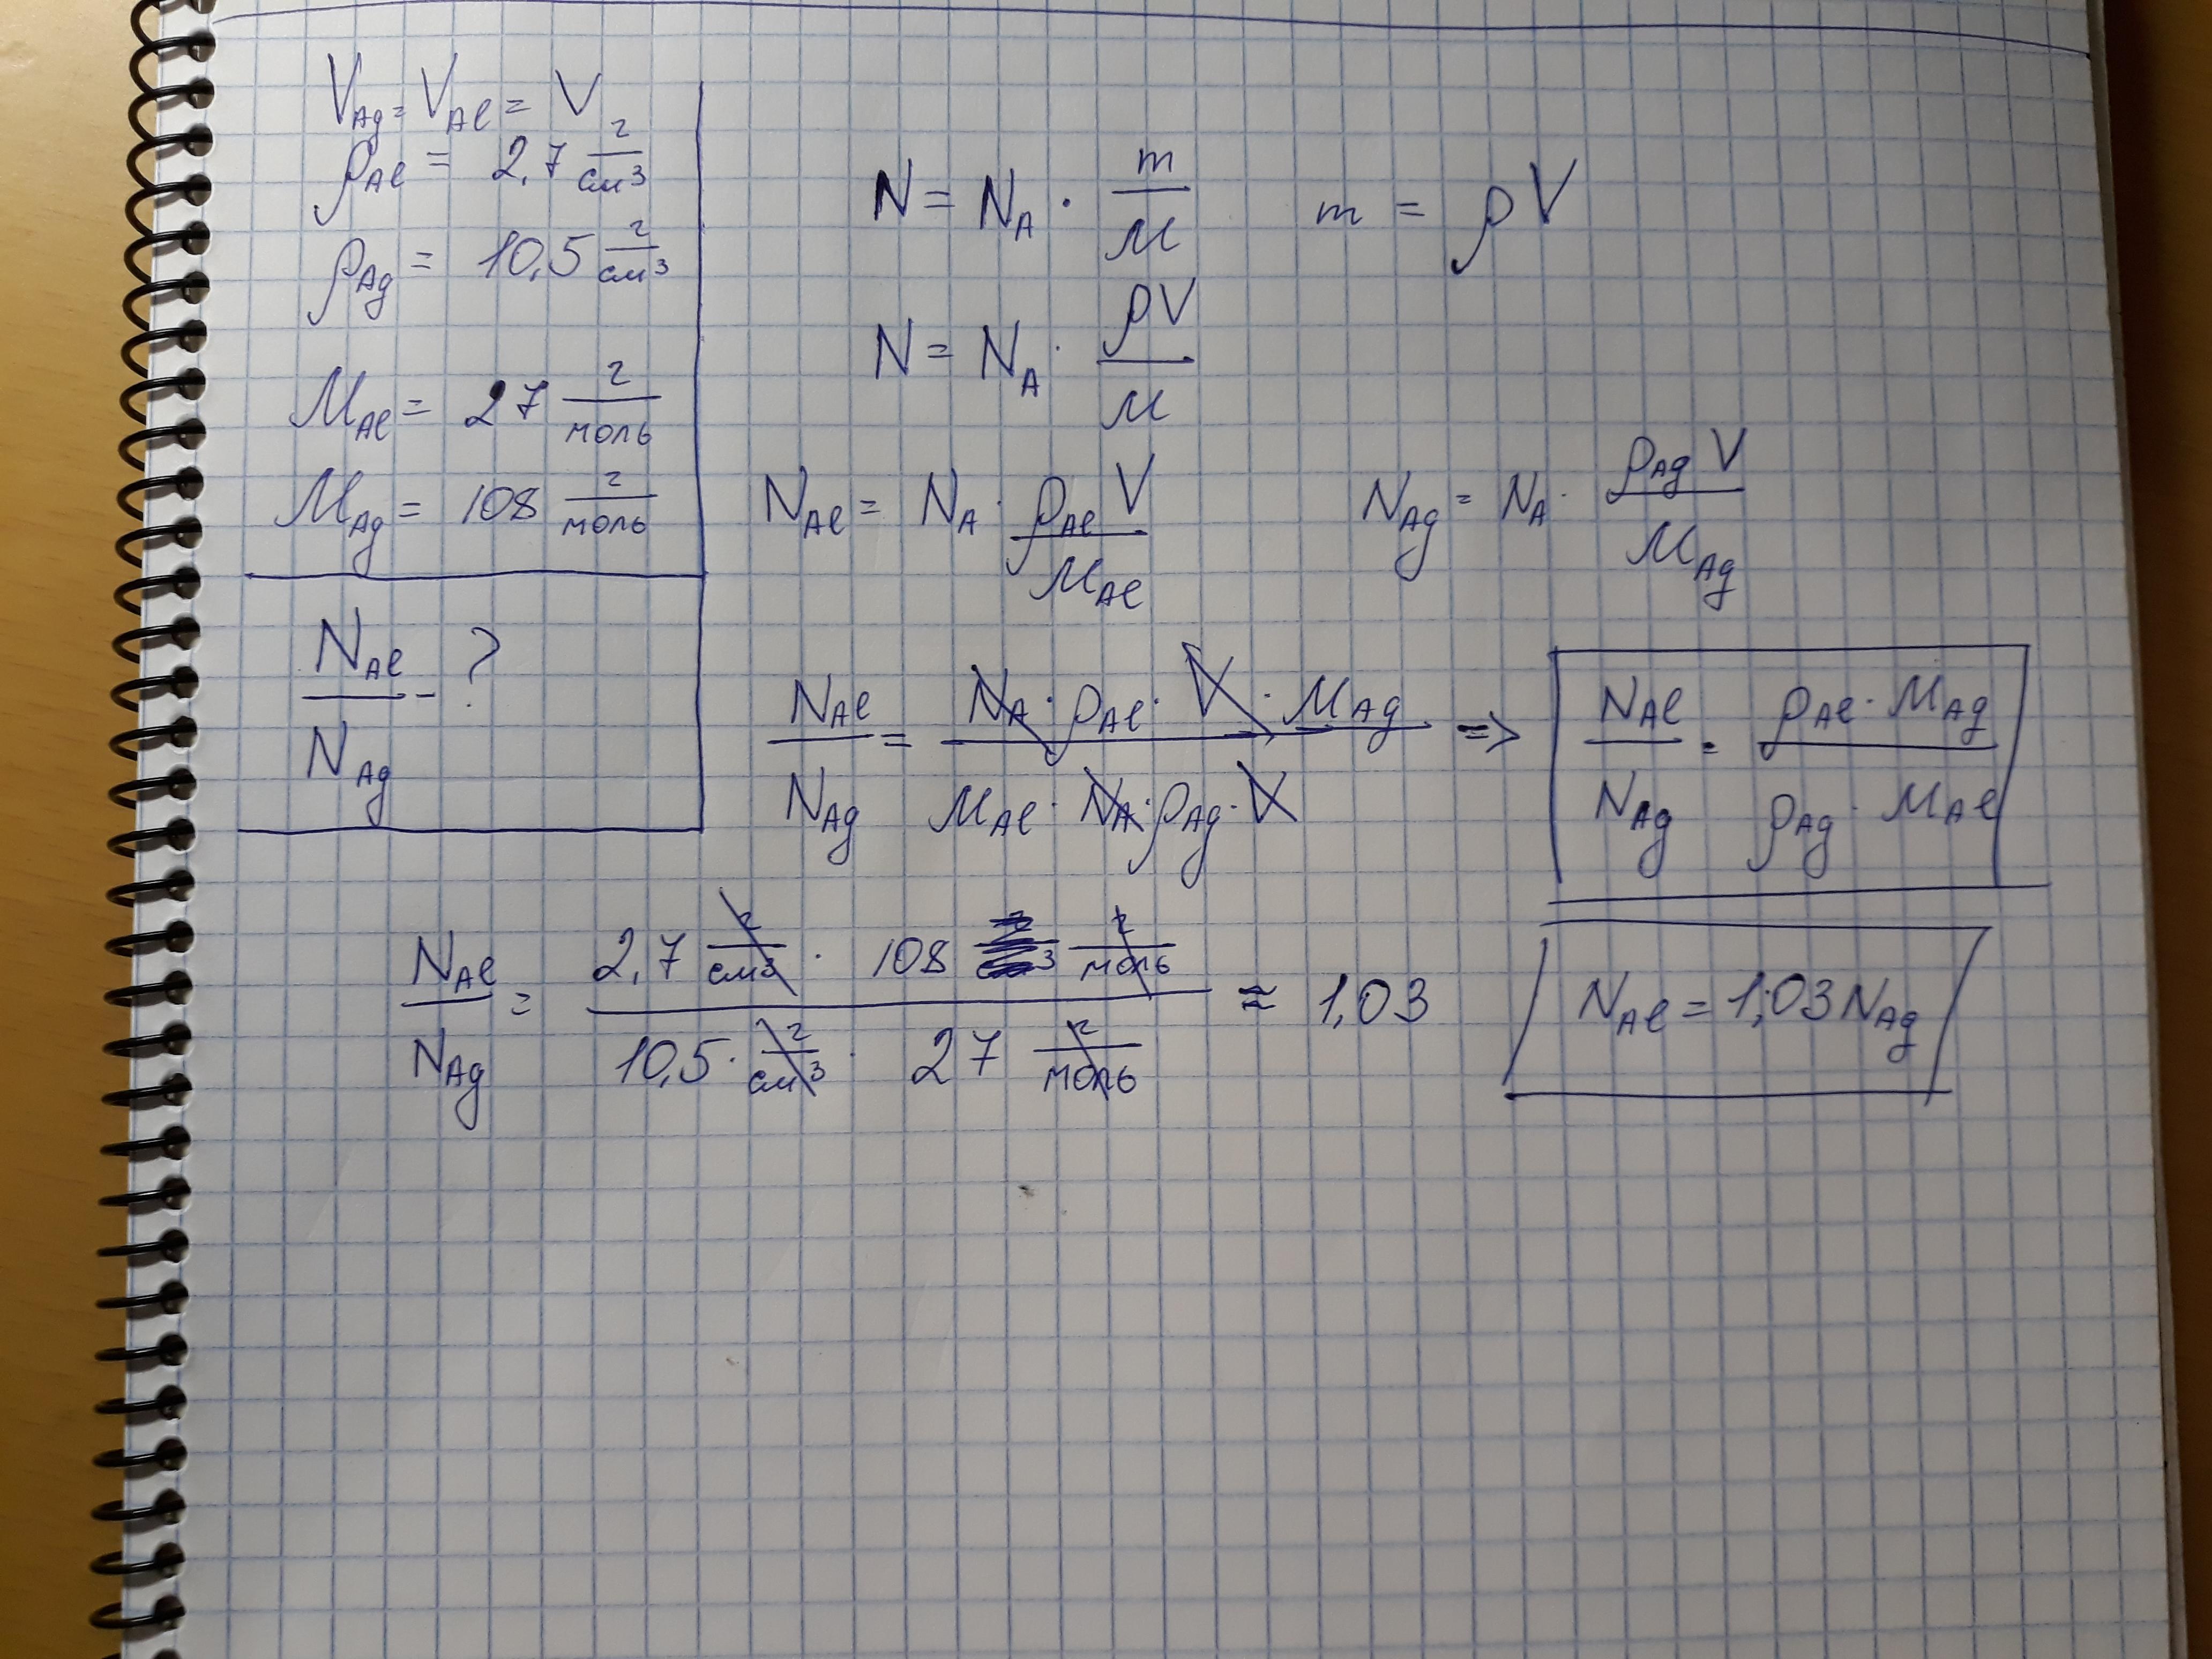 V_Ag = V_Al = V
ρ_Al = 2,7 г/см³
ρ_Ag = 10,5 г/см³
M_Al = 27 г/моль
M_Ag = 108 г/моль
N_Al/N_Ag - ?
N = N_A · m/M    m = ρV
N = N_A · ρV/M
N_Al = N_A · ρ_Al V/M_Al    N_Ag = N_A · ρ_Ag V/M_Ag
N_Al/N_Ag = N_A · ρ_Al · V · M_Ag / M_Al · N_A · ρ_Ag · V => N_Al/N_Ag = ρ_Al · M_Ag / ρ_Ag · M_Al
N_Al/N_Ag = 2,7 г/см³ · 108 г/моль / 10,5 · г/см³ · 27 г/моль ≈ 1,03    N_Al = 1,03 N_Ag